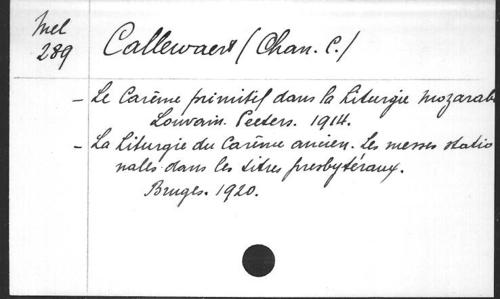 Mel
289
Callewaert (Chan. C.)
- Le Carême primitif dans la Liturgie mozarabe
Louvain. Peeters. 1914.
- La Liturgie du Carême ancien. Les messes statio
nales dans les titres presbytéraux.
Bruges. 1920.